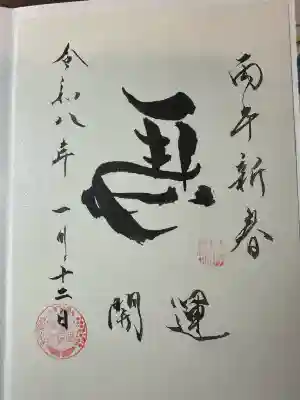 丙午新春
馬
開運
令和八年 一月十二日